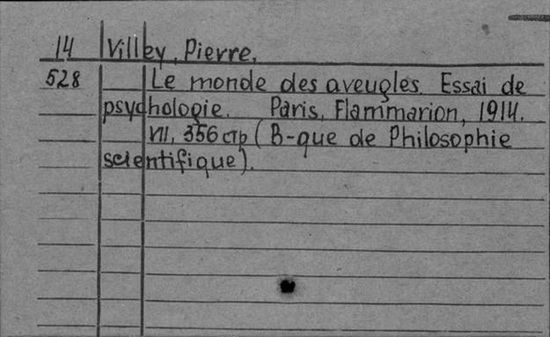 14 Villey, Pierre,
528 Le monde des aveugles. Essai de
psychologie. Paris, Flammarion, 1914.
VII, 356 стр (B-que de Philosophie
scientifique).